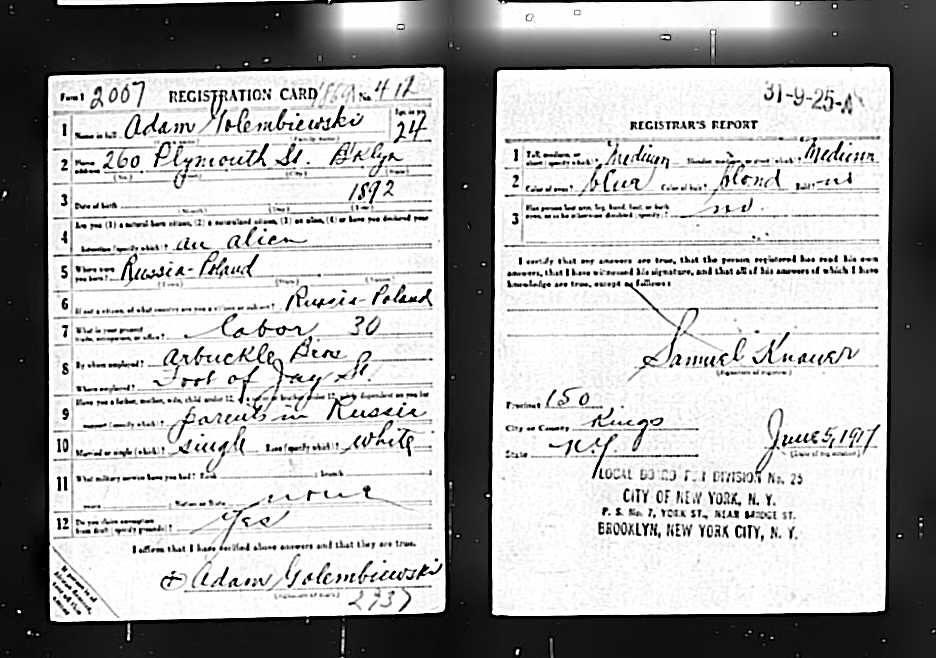 Form 1 2007 REGISTRATION CARD No. 412
1 Name in full Adam Golembiewski Age, in yrs. 24
(Family name)
2 Home address 260 Plymouth St. B'klyn
(No.) (City) (State)
3 Date of birth 1892
(Month) (Day) (Year)
4 Are you (1) a natural-born citizen, (2) a naturalized citizen, (3) an alien, (4) or have you declared your
intention (specify which)? an alien
5 Where were you born? Russia-Poland
(Town) (State) (Nation)
6 If not a citizen, of what country are you a citizen or subject? Russia-Poland
7 What is your present trade, occupation, or office? labor 30
8 By whom employed? Arbuckle Bros
Where employed? Foot of Jay St.
9 Have you a father, mother, wife, child under 12, or a sister or brother under 12, solely dependent on you for
support (specify which)? parents in Russia
10 Married or single (which)? single Race (specify which)? white
11 What military service have you had? Rank ; branch
years ; Nation or State none
12 Do you claim exemption from draft (specify grounds)? Yes
I affirm that I have verified above answers and that they are true.
Adam Golembiewski
2737
31-9-25-A
REGISTRAR'S REPORT
1 Tall, medium, or short (specify which)? Medium Slender, medium, or stout (which)? Medium
2 Color of eyes? blue Color of hair? blond Bald? no
3 Has person lost arm, leg, hand, foot, or both eyes, or is he otherwise disabled (specify)? no.
I certify that my answers are true, that the person registered has read his own
answers, that I have witnessed his signature, and that all of his answers of which I have
knowledge are true, except as follows:
Samuel Knauer
(Signature of registrar)
Precinct 150
City or County Kings
State N.Y. June 5, 1917
(Date of registration)
LOCAL BOARD FOR DIVISION No. 25
CITY OF NEW YORK, N. Y.
P. S. No. 7, YORK ST., NEAR BRIDGE ST.
BROOKLYN, NEW YORK CITY, N. Y.